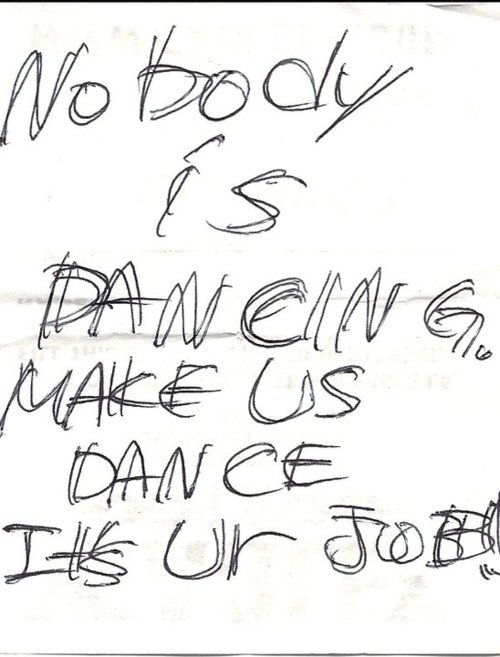 Nobody
is
DANCING.
MAKE US
DANCE
It's Ur JOB!!!